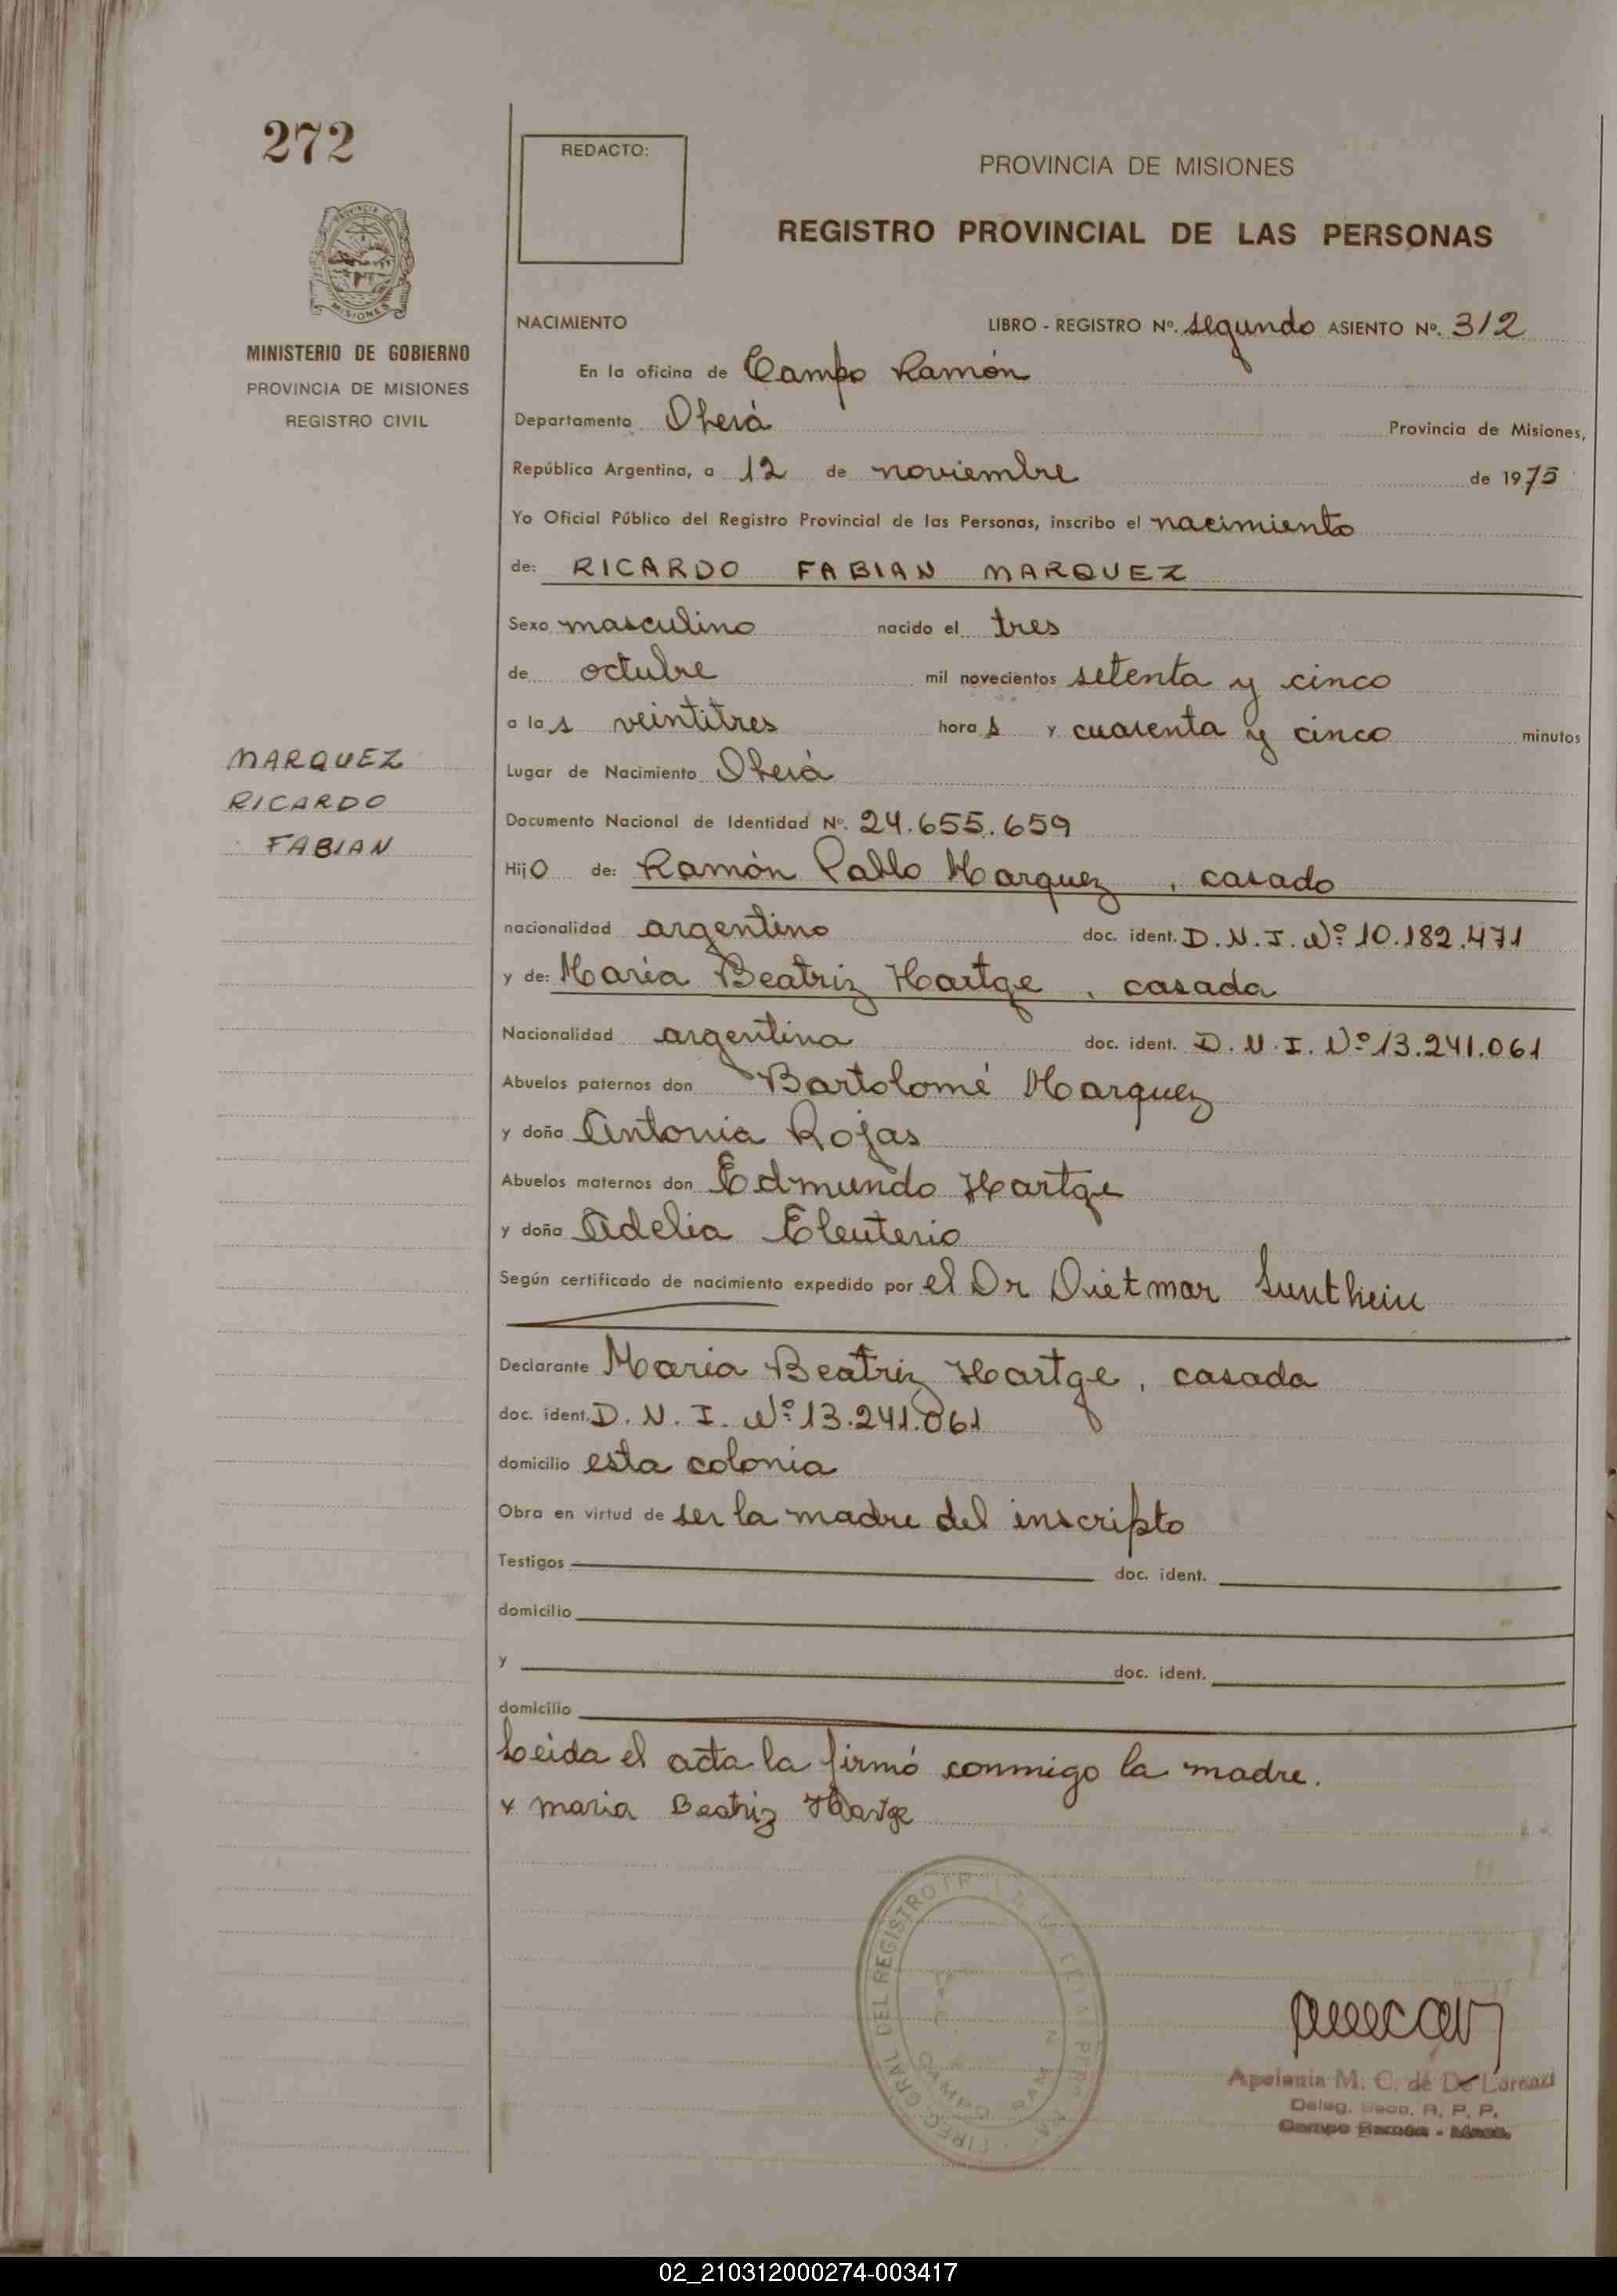 272
REDACTO:
PROVINCIA DE MISIONES
REGISTRO PROVINCIAL DE LAS PERSONAS
MISIONES
MINISTERIO DE GOBIERNO
PROVINCIA DE MISIONES
REGISTRO CIVIL
NACIMIENTO LIBRO - REGISTRO Nº. segundo ASIENTO Nº. 312
En la oficina de Campo Ramón
Departamento Oberá Provincia de Misiones,
República Argentina, a 12 de noviembre de 1975
Yo Oficial Público del Registro Provincial de las Personas, inscribo el nacimiento
de: RICARDO FABIAN MARQUEZ
Sexo masculino nacido el tres
de octubre mil novecientos setenta y cinco
a las veintitres horas y cuarenta y cinco minutos
MARQUEZ
RICARDO
FABIAN
Lugar de Nacimiento Oberá
Documento Nacional de Identidad Nº. 24.655.659
Hijo de: Ramón Pablo Marquez, casado
nacionalidad argentino doc. ident. D.N.I. Nº 10.182.471
y de: Maria Beatriz Hartge, casada
Nacionalidad argentina doc. ident. D.N.I. Nº 13.241.061
Abuelos paternos don Bartolomé Marquez
y doña Antonia Rojas
Abuelos maternos don Edmundo Hartge
y doña Adelia Eleuterio
Según certificado de nacimiento expedido por el Dr Dietmar
Declarante Maria Beatriz Hartge, casada
doc. ident. D.N.I. Nº 13.241.061
domicilio esta colonia
Obra en virtud de ser la madre del inscripto
Testigos doc. ident.
domicilio
y doc. ident.
domicilio
Leida el acta la firmó conmigo la madre.
x maria Beatriz Hartge
GRAL DEL REGISTRO
CAMPO RAM N
Apolonia M. C. de De Lorenzi
Deleg. R. P. P.
Campo Ramón - Mnes.
02_210312000274-003417